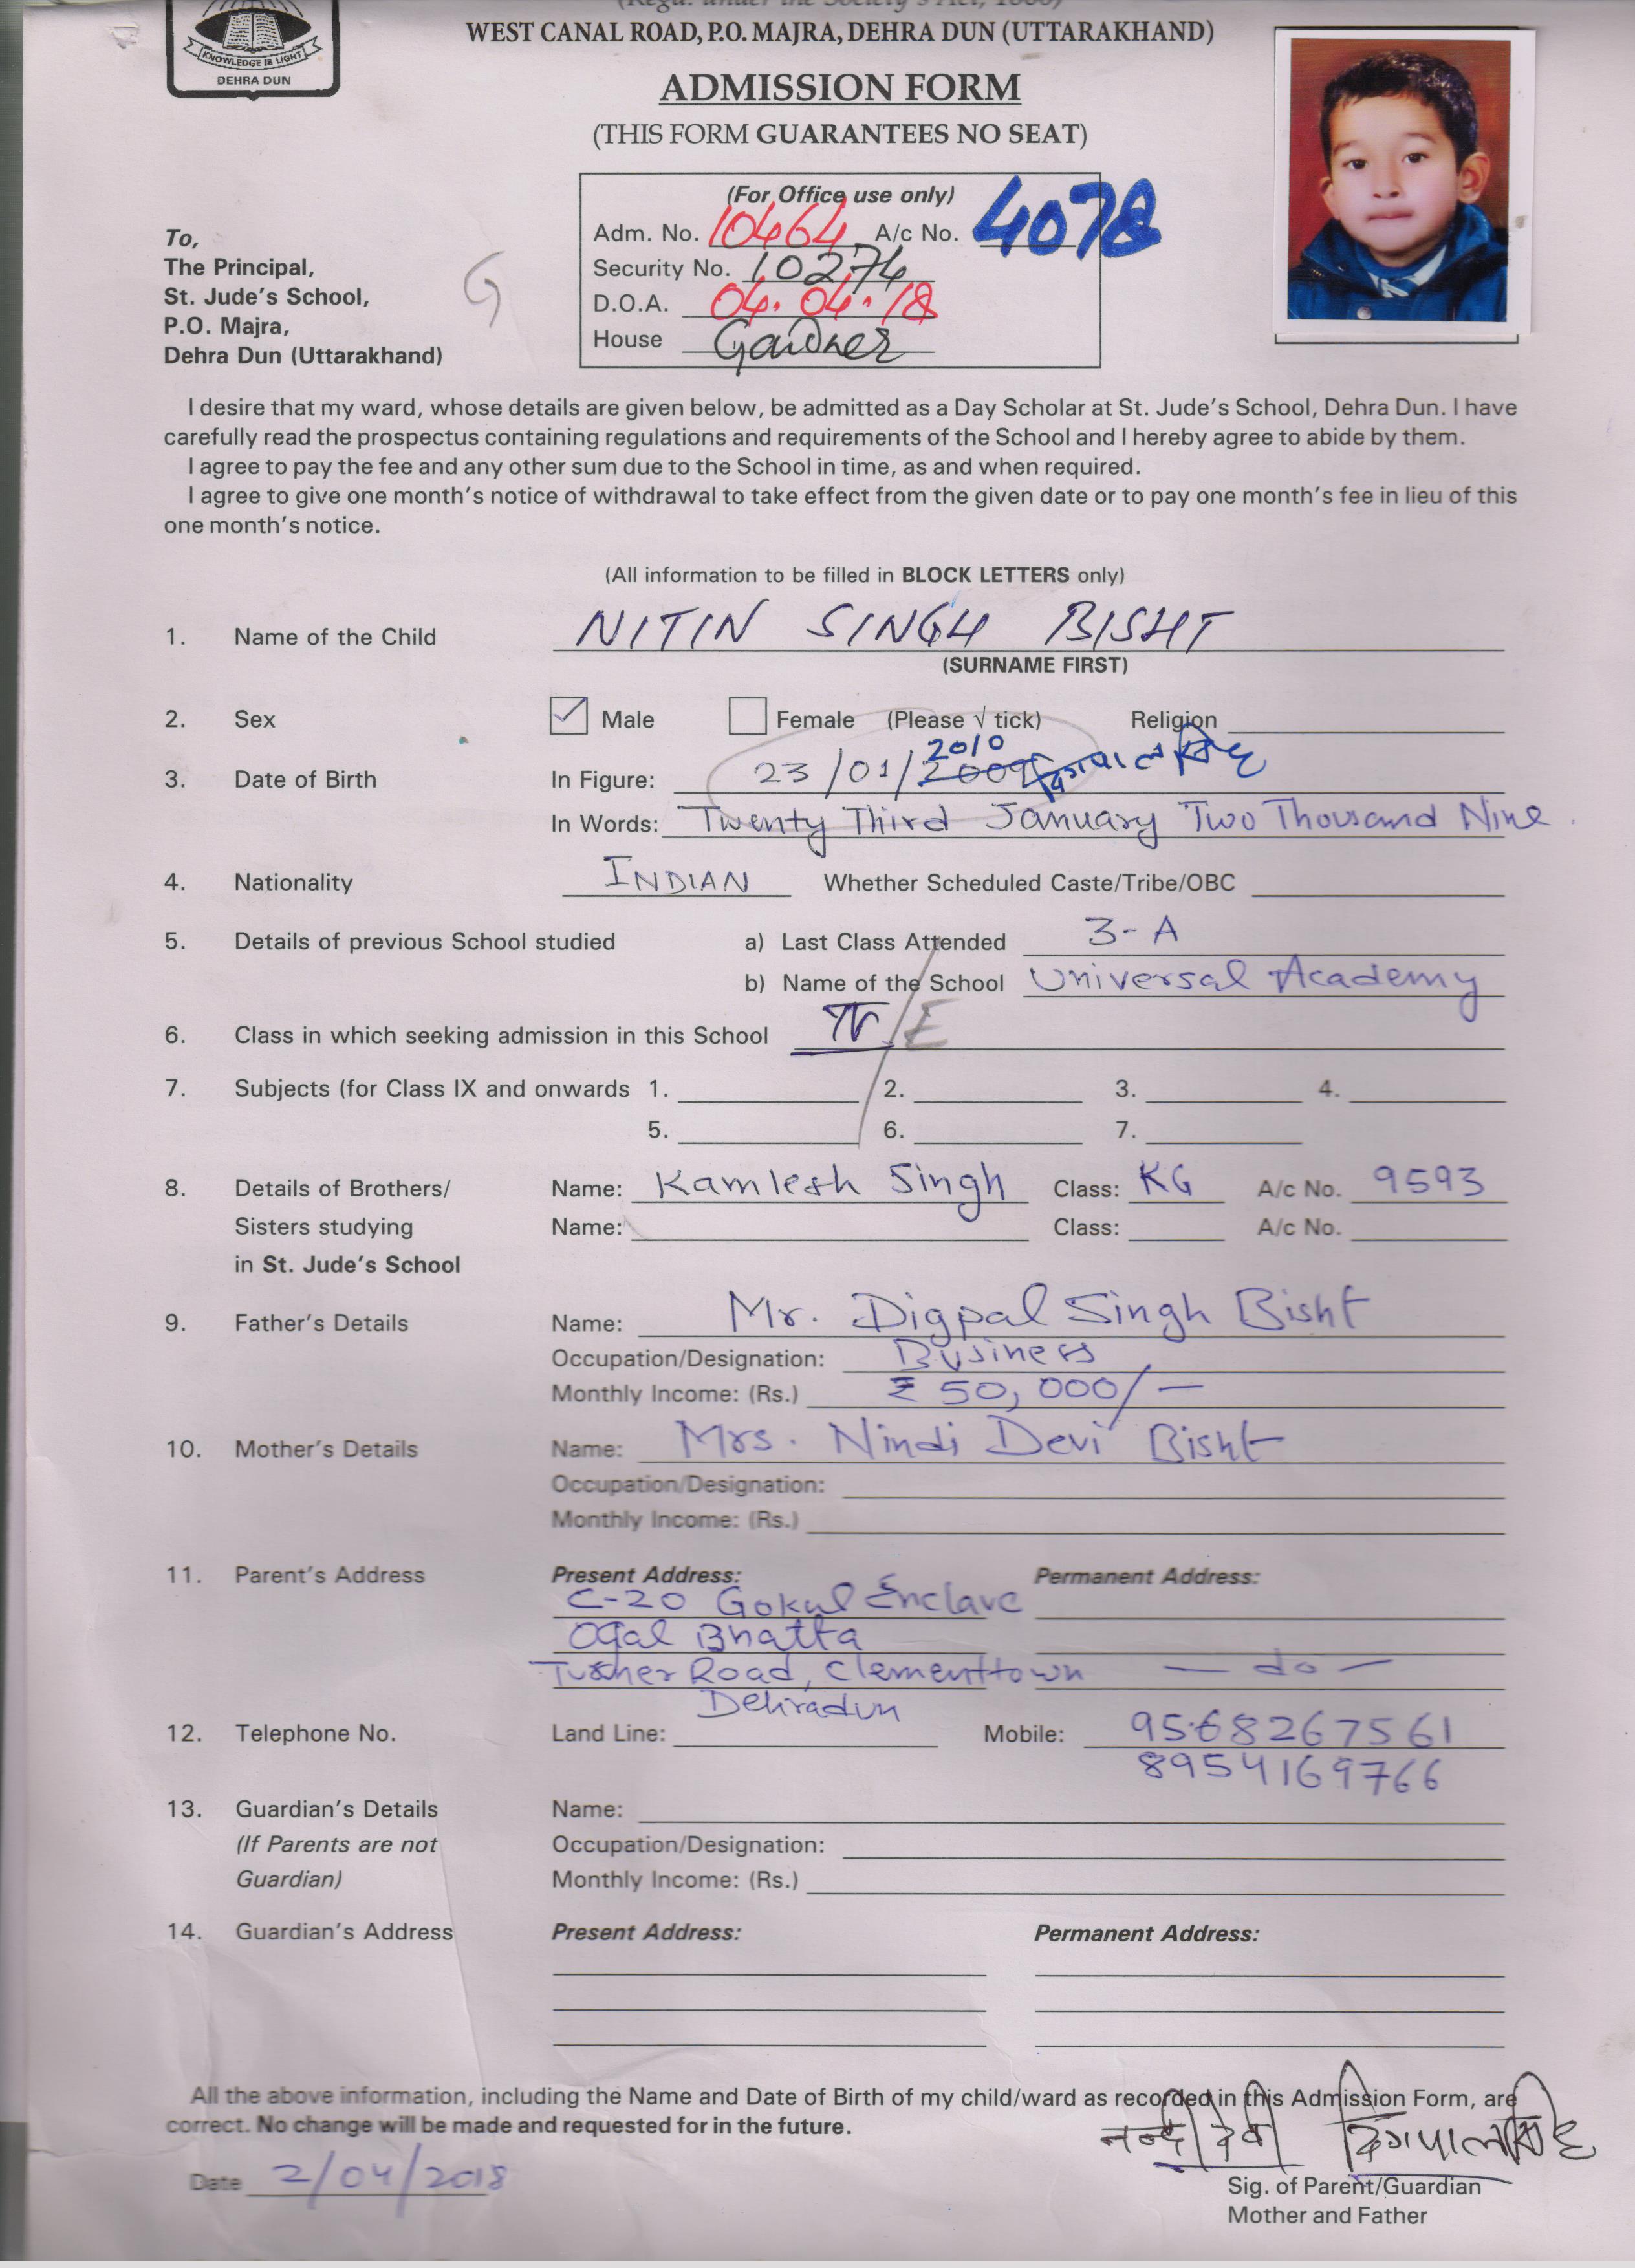 KNOWLEDGE IS LIGHT
DEHRA DUN
(Regd. under the Society's Act, 1860)
WEST CANAL ROAD, P.O. MAJRA, DEHRA DUN (UTTARAKHAND)
ADMISSION FORM
(THIS FORM GUARANTEES NO SEAT)
(For Office use only)
Adm. No. 10464 A/c No. 4078
Security No. 10274
D.O.A. 04.04.18
House Gardner
To,
The Principal,
St. Jude's School,
P.O. Majra,
Dehra Dun (Uttarakhand)
G
I desire that my ward, whose details are given below, be admitted as a Day Scholar at St. Jude's School, Dehra Dun. I have
carefully read the prospectus containing regulations and requirements of the School and I hereby agree to abide by them.
I agree to pay the fee and any other sum due to the School in time, as and when required.
I agree to give one month's notice of withdrawal to take effect from the given date or to pay one month's fee in lieu of this
one month's notice.
(All information to be filled in BLOCK LETTERS only)
1. Name of the Child NITIN SINGH BISHT
(SURNAME FIRST)
2. Sex Male Female (Please √ tick) Religion
2010
3. Date of Birth In Figure: 23/01/2009 दिगपाल सिंह
In Words: Twenty Third January Two Thousand Nine.
4. Nationality INDIAN Whether Scheduled Caste/Tribe/OBC
5. Details of previous School studied a) Last Class Attended 3-A
b) Name of the School Universal Academy
6. Class in which seeking admission in this School IV/E
7. Subjects (for Class IX and onwards 1. 2. 3. 4.
5. 6. 7.
8. Details of Brothers/ Name: Kamlesh Singh Class: KG A/c No. 9593
Sisters studying Name: Class: A/c No.
in St. Jude's School
9. Father's Details Name: Mr. Digpal Singh Bisht
Occupation/Designation: Business
Monthly Income: (Rs.) ₹ 50,000/-
10. Mother's Details Name: Mrs. Nindi Devi Bisht
Occupation/Designation:
Monthly Income: (Rs.)
11. Parent's Address Present Address: Permanent Address:
C-20 Gokul Enclave
Ogal Bhatta
Turner Road, Clementtown — do —
Dehradun
12. Telephone No. Land Line: Mobile: 9568267561
8954169766
13. Guardian's Details Name:
(If Parents are not Occupation/Designation:
Guardian) Monthly Income: (Rs.)
14. Guardian's Address Present Address: Permanent Address:
All the above information, including the Name and Date of Birth of my child/ward as recorded in this Admission Form, are
correct. No change will be made and requested for in the future.
नन्दी देवी दिगपाल सिंह
Date 2/04/2018
Sig. of Parent/Guardian
Mother and Father